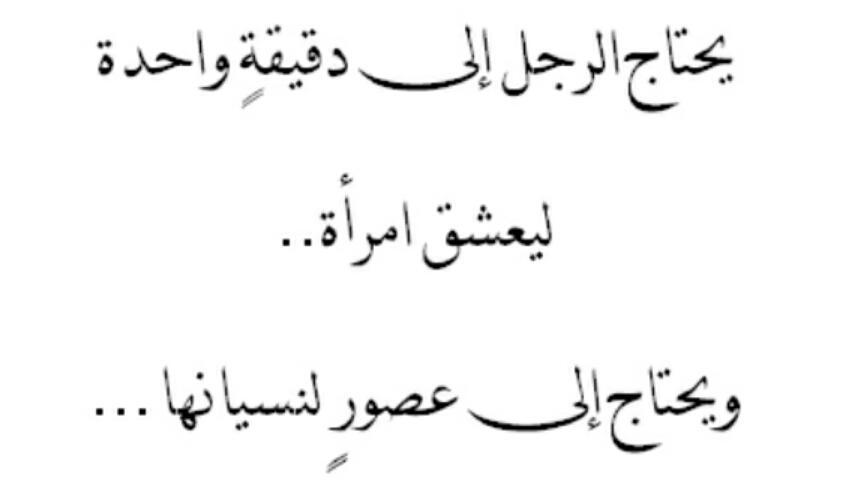 يحتاج الرجل إلى دقيقةٍ واحدة
ليعشق امرأة..
ويحتاج إلى عصورٍ لنسيانها ...